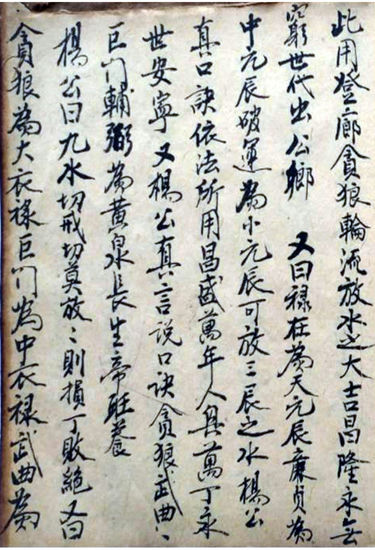 此用登廊貪狼輪流放水之大吉昌隆永無
窮世代出公鄉 又曰禄在為天元辰廉貞為
中元辰破運為小元辰可放三辰之水楊公
真口訣依法所用昌盛萬年人興萬丁永
世安寧又楊公真言說口訣貪狼武曲〻
巨门輔弼為黄泉長生帝旺養
楊公曰九水切戒切莫放〻則損丁敗絕又曰
貪狼為大衣禄巨门為中衣禄武曲為